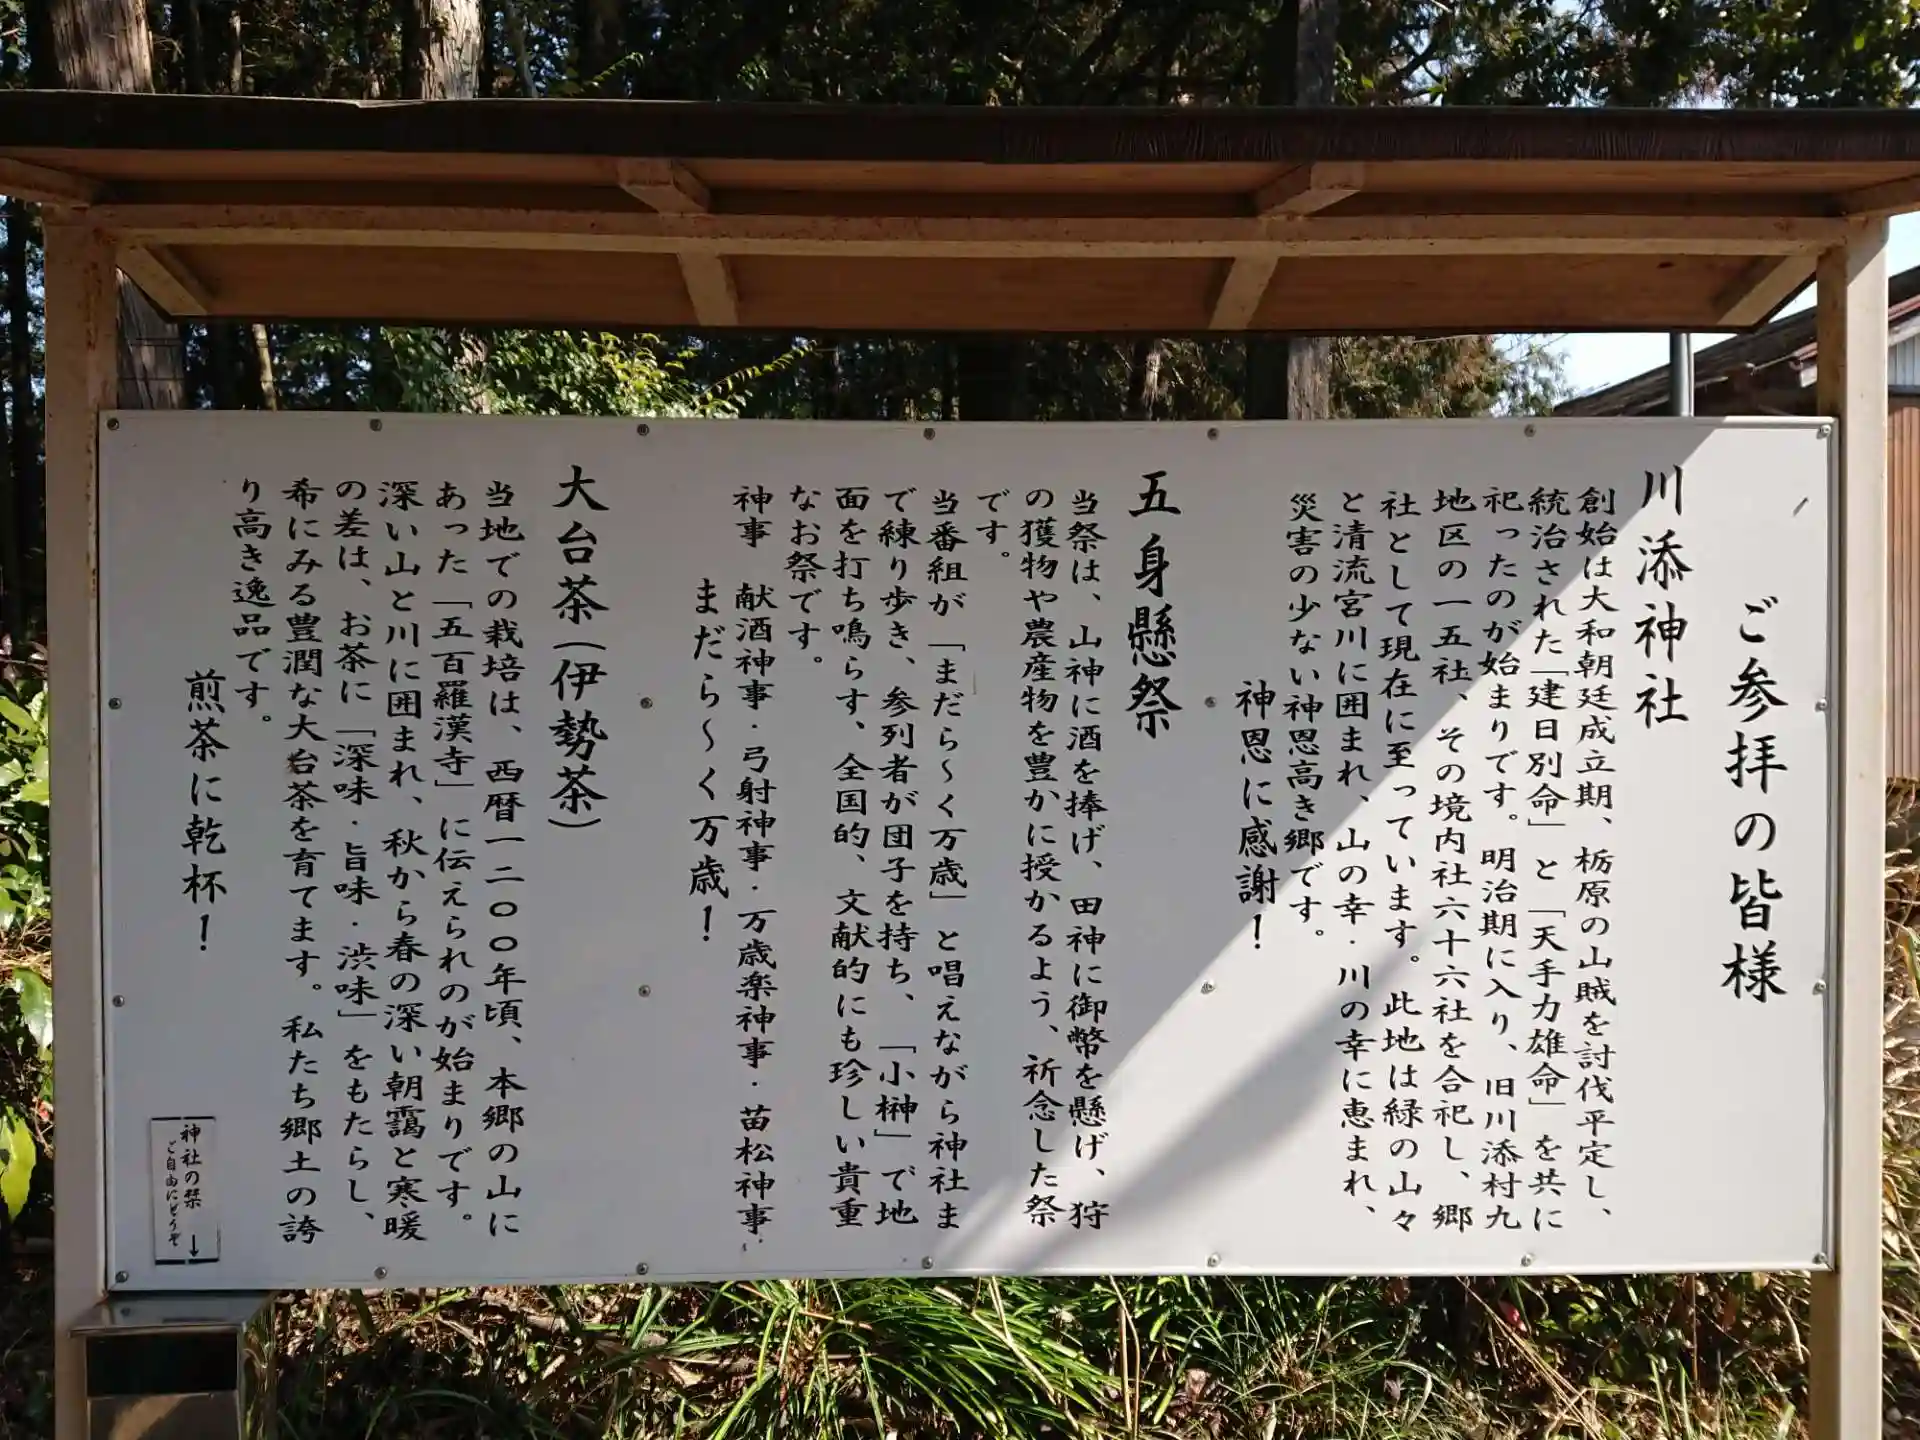 ご参拝の皆様
川添神社
創始は大和朝廷成立期、栃原の山賊を討伐平定し、
統治された「建日別命」と「天手力雄命」を共に
祀ったのが始まりです。明治期に入り、旧川添村九
地区の一五社、その境内社六十六社を合祀し、郷
社として現在に至っています。此地は緑の山々
と清流宮川に囲まれ、山の幸・川の幸に恵まれ、
災害の少ない神恩高き郷です。
神恩に感謝！
五身懸祭
当祭は、山神に酒を捧げ、田神に御幣を懸げ、狩
の獲物や農産物を豊かに授かるよう、祈念した祭
です。
当番組が「まだら～く万歳」と唱えながら神社ま
で練り歩き、参列者が団子を持ち、「小榊」で地
面を打ち鳴らす、全国的、文献的にも珍しい貴重
なお祭です。
神事　献酒神事・弓射神事・万歳楽神事・苗松神事・
まだら～く万歳！
大台茶（伊勢茶）
当地での栽培は、西暦一二〇〇年頃、本郷の山に
あった「五百羅漢寺」に伝えられのが始まりです。
深い山と川に囲まれ、秋から春の深い朝靄と寒暖
の差は、お茶に「深味・旨味・渋味」をもたらし、
希にみる豊潤な大台茶を育てます。私たち郷土の誇
り高き逸品です。
煎茶に乾杯！
神社の栞
ご自由にどうぞ
↓